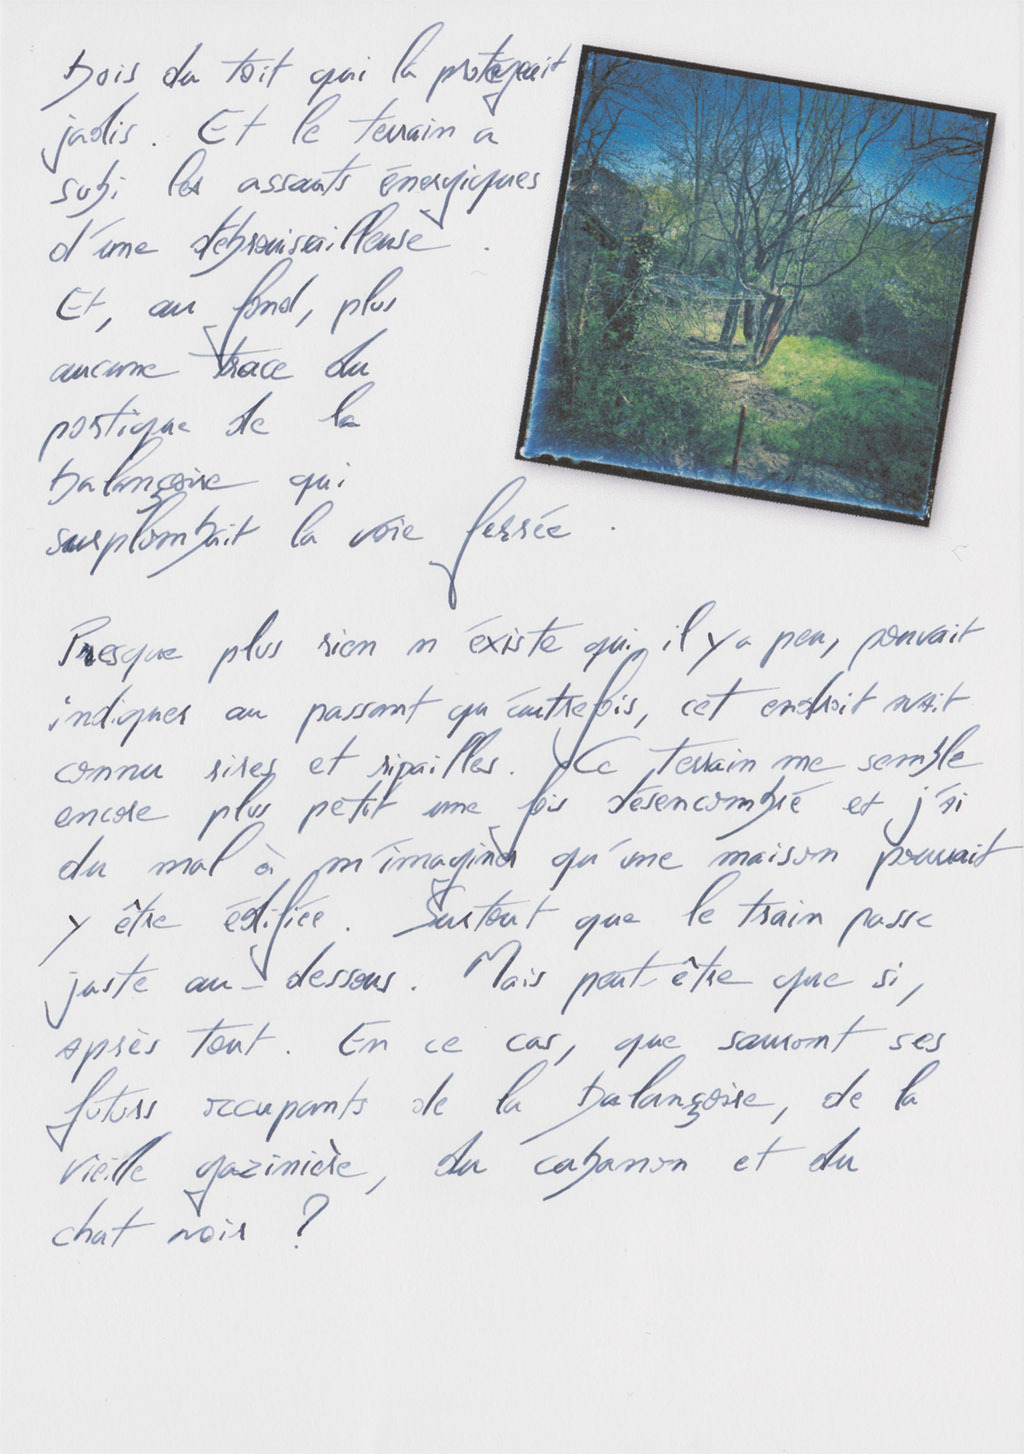 bois du toit qui la protégeait
jadis. Et le terrain a
subi les assauts énergiques
d'une débroussailleuse.
Et, au fond, plus
aucune trace du
portique de la
balançoire qui
surplombait la voie ferrée.
Presque plus rien n'existe qui, il y a peu, pouvait
indiquer au passant qu'autrefois, cet endroit avait
connu rires et ripailles. Ce terrain me semble
encore plus petit une fois désencombré et j'ai
du mal à m'imaginer qu'une maison pouvait
y être édifiée. Surtout que le train passe
juste au-dessous. Mais peut-être que si,
après tout. En ce cas, que sauront ses
futurs occupants de la balançoire, de la
vieille gazinière, du cabanon et du
chat noir ?